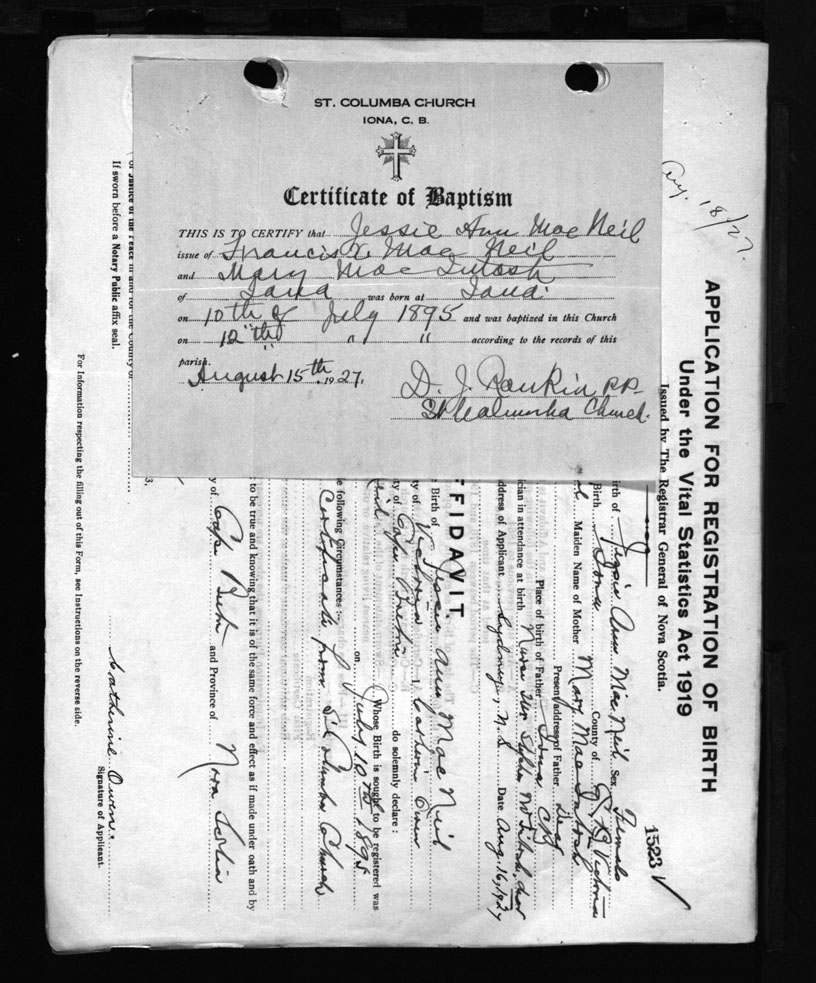 ST. COLUMBA CHURCH
IONA, C. B.
Certificate of Baptism
THIS IS TO CERTIFY that Jessie Ann MacNeil
issue of Francis X. MacNeil
and Mary MacIntosh
of Iona was born at Iona
on 10th of July 1895 and was baptized in this Church
on 12th " " according to the records of this
parish.
August 15th 1927,
D. J. Rankin P.P.
St Columba Church.
Aug. 18/27.
1523
APPLICATION FOR REGISTRATION OF BIRTH
Under the Vital Statistics Act 1919
Issued by The Registrar General of Nova Scotia.
irth of Jessie Ann MacNeil Sex Female
Birth Iona County of Victoria
Maiden Name of Mother Mary MacIntosh
Present address of Father Dead
Place of birth of Father Iona C.B.
ician in attendance at birth Nurse Mrs Stephen
ddress of Applicant Sydney, N.S. Date Aug. 16, 1927
FFIDAVIT.
Birth of Jessie Ann MacNeil
ty of Victoria I Catherine Owen
ty of Cape Breton do solemnly declare:
Neil Whose Birth is sought to be registered was
on July 10th 1895
e following Circumstances:
Certificate from St Columba Church
to be true and knowing that it is of the same force and effect as if made under oath and by
y of Cape Breton and Province of Nova Scotia
3.
or Justice of the Peace in and for the County of
If sworn before a Notary Public affix seal.
Catherine Owen
Signature of Applicant.
For Information respecting the filling out of this Form, see Instructions on the reverse side.